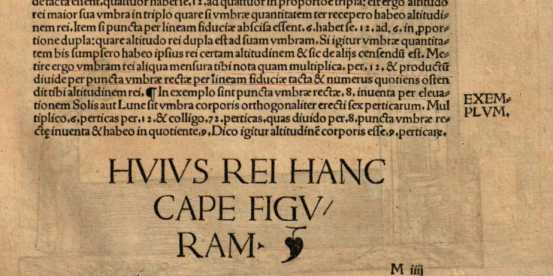 de tacta essent, quattuor haberse, 12. ad quatuor in proportõe tripla; eſt ergo altitudo
rei maior sua vmbra in triplo quare si vmbræ quantitatem ter recepero habeo altitudi-
nem rei. Item si puncta per lineam fiduciæ abscisa essent. 6. habet se. 12. ad. 6. in, ppor
tione dupla: quare altitudo rei dupla est ad suam vmbram. Si igitur vmbræ quantita-
tem bis sumpsero habeo ipsius rei certam altitudinem & sic de alijs censendũ est. Me-
tire ergo vmbram rei aliqua mensura tibi nota quam multiplica. per. 12. & productũ
diuide per puncta vmbræ rectæ per lineam fiduciæ tacta & numerus quotiens osten
dit tibi altitudinem rei. ¶ In exemplo sint puncta vmbræ rectæ. 8. inuenta per eleua-
tionem Solis aut Lune sit vmbra corporis orthogonaliter erecti sex perticarum. Mul
tiplico. 6. perticas per. 12. & colligo. 72. perticas. quas diuido per. 8. puncta vmbræ re-
ctę inuenta & habeo in quotiente. 9. Dico igitur altitudinẽ corporis esse. 9. perticarȝ.
EXEM-
PLVM.
HVIVS REI HANC
CAPE FIGV/
RAM.
M iiij